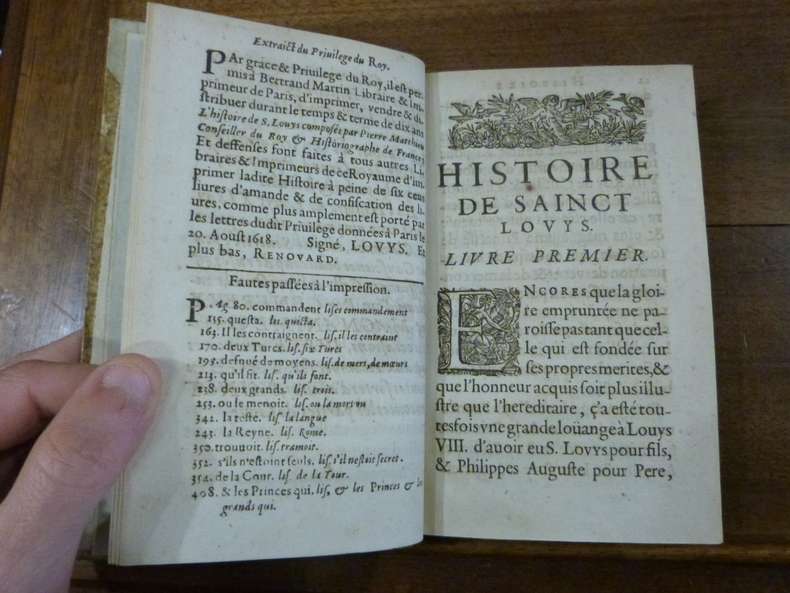 Extraict du Priuilege du Roy.
PAr grace & Priuilege du Roy, il est per-
mis à Bertrand Martin Libraire & Im-
primeur de Paris, d'imprimer, vendre & di-
stribuer durant le temps & terme de dix ans
L'histoire de S. Louys composée par Pierre Matthieu
Conseiller du Roy & Historiographe de France,
Et deffenses sont faites à tous autres Li-
braires & Imprimeurs de ce Royaume d'im-
primer ladite Histoire à peine de six cens
liures d'amande & de confiscation des li-
ures, comme plus amplement est porté par
les lettres dudit Priuilege données à Paris le
20. Aoust 1618. Signé, LOVYS. Et
plus bas, RENOVARD.
Fautes passées à l'impression.
PAg. 80. commandent lises commandement
155. questa. lis. quista.
163. Il les contraignent. lis, il les contraint
170. deux Turcs. lis. six Turcs
195. desnué de moyens. lis. de mers, de mœurs
213. qu'il fit. lis. qu'ils font.
218. deux grands. lis. trois.
253. ou le menoit. lis. ou la mort ru
342. la teste. lis la langue
243. la Reyne. lis. Rome.
350. trouuoit. lis. tramoit.
352. s'ils n'estoint seuls. lis. s'il n'estoit secret.
354. de la Cour. lis. de la Tour.
408. & les Princes qui. lis, & les Princes &
grands qui.
HISTOIRE
DE SAINCT
LOVYS.
LIVRE PREMIER.
ENCORES que la gloi-
re empruntée ne pa-
roisse pas tant que cel-
le qui est fondée sur
ses propres merites, &
que l'honneur acquis soit plus illu-
stre que l'hereditaire, ç'a esté tou-
tesfois vne grande loüange à Louys
VIII. d'auoir eu S. Lovys pour fils,
& Philippes Auguste pour Pere,